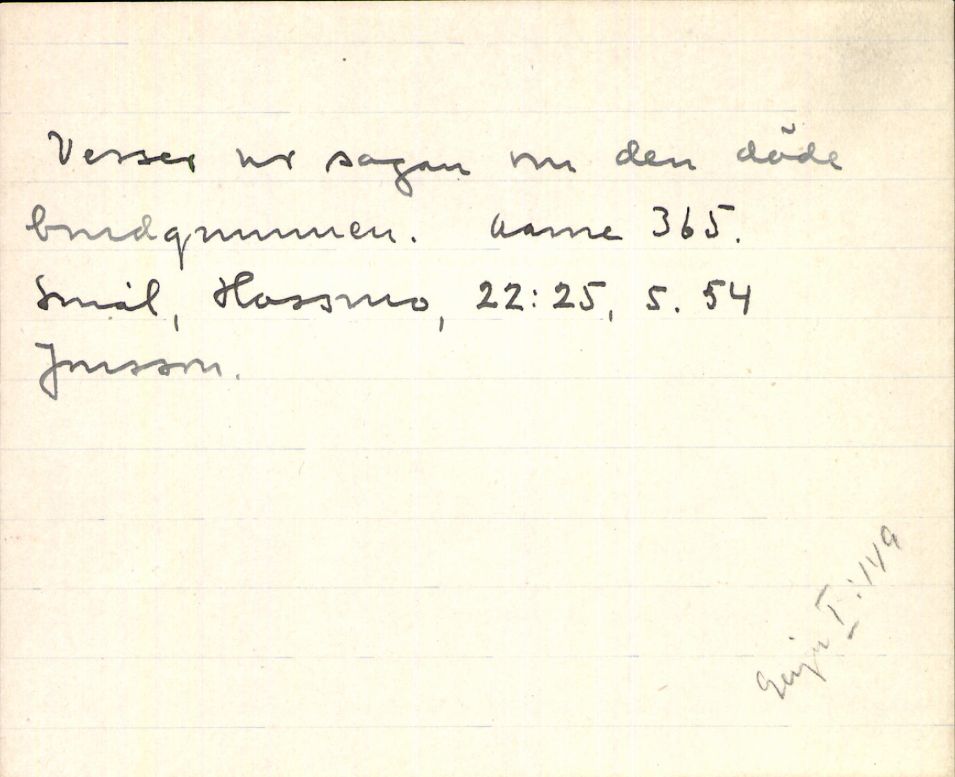 Verser ur sagan om den döde
brudgummen. Aarne 365.
Smål, Hossmo, 22:25, s. 54
Jonsson.
I:149